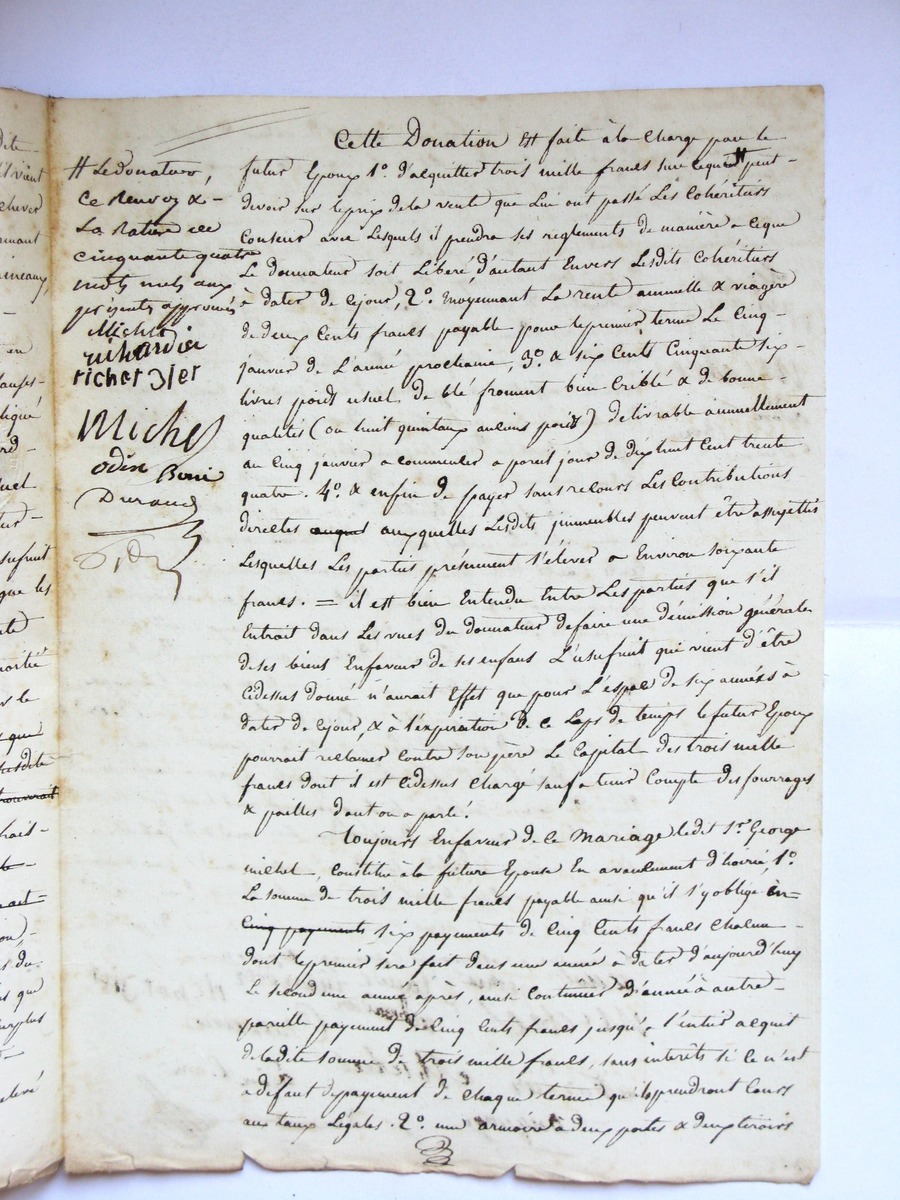 Cette Donation est faite à la charge par le
futur Epoux 1° d'acquitter trois mille francs sur ce que # peut-
devoir sur le prix de la vente que lui ont passé Les Cohéritiers
Conseur avec Lesquels il prendra ses reglements de manière a ceque
Le donnateur soit Libéré d'autant Envers Lesdits Cohéritiers
à dater de cejour, 2°. moyennant La rente annuelle & viagère
de deux Cents francs payable pour le premier terme Le Cinq-
janvier de L'année prochaine, 3°. & six Cents Cinquante six-
livres poids usuel de blé froment bien Criblé & de bonne-
qualités (ou huit quintaux anciens poids) délivrable annuellement
au Cinq janvier a commencer a pareil jour de dix huit Cent trente
quatre. 4°. & enfin de payer sans recours Les Contributions
directes auxquelles Lesdits jmmeubles peuvent être assujettis
Lesquelles Les parties présument s'élever a Environ soixante
francs. = il est bien Entendu Entre Les parties que s'il
Entrait dans Les vues du donnateur defaire une démission générale
de ses biens Enfaveur de ses enfans L'usufruit qui vient d'être
Cidessus donné n'aurait Effet que pour L'espace de six années à
dater de cejour, & à l'expiration de ce Laps de temps le futur Epoux
pourrait réclamer Contre son père Le Capital des trois mille
francs dont il est Cidessus Chargé sauf a tenir Compte des fourrages
& pailles dont on a parlé.
Toujours Enfaveur de Ce Mariage ledit Sr. George
michel, Constitue à la future Epouse En avancement d'hoirie, 1°.
La somme de trois mille francs payable ainsi qu'il s'y oblige en-
Cinq payements six payements de Cinq Cents francs Chacun-
dont le premier sera fait dans une année à dater d'aujourd'huy
Le second une année après, ainsi Continuer d'année à autre-
pareille payement de Cinq Cents francs jusqu'a l'entier acquit
de ladite somme de trois mille francs, sans interêts si ce n'est
a défaut depayement de Chaque terme qu'ils prendront Cours
aux taux Légales. 2°. une armoire à deux portes & deux tiroirs
# Le donateur,
Ce Renvoy &-
La Rature de
Cinquante quatre
mots nuls aux
présents approuvés
Michel
richardier
richer 3ier
Michel
odin
Durand